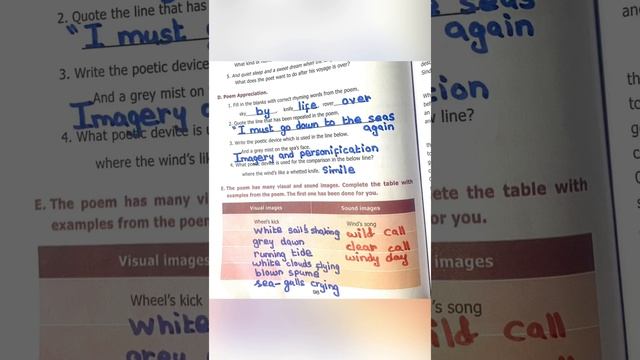 2. Quote the line that has
"I must g
3. Write the poetic device
And a grey mist on
Imagery a
4. What poetic device is u
where the wind's lik
E. The poem has many vi
examples from the poem
Visual images
Wheel's kick
white
grey
What kind of
5. And quiet sleep and a sweet dream when the
What does the poet want to do after his voyage is over?
D. Poem Appreciation.
1. Fill in the blanks with correct rhyming words from the poem.
sky by knife life rover over
2. Quote the line that has been repeated in the poem.
"I must go down to the seas
again
3. Write the poetic device which is used in the line below.
And a grey mist on the sea's face.
Imagery and personification
4. What poetic device is used for the comparison in the below line?
where the wind's like a whetted knife. Simile
E. The poem has many visual and sound images. Complete the table with
examples from the poem. The first one has been done for you.
Visual images Sound images
Wheel's kick Wind's song
white sail's shaking wild call
grey dawn clear call
running tide windy day
white clouds flying
blown spume
sea-galls crying
e seas
again
tion
w line?
ete the table with
or you.
images
's song
ild call